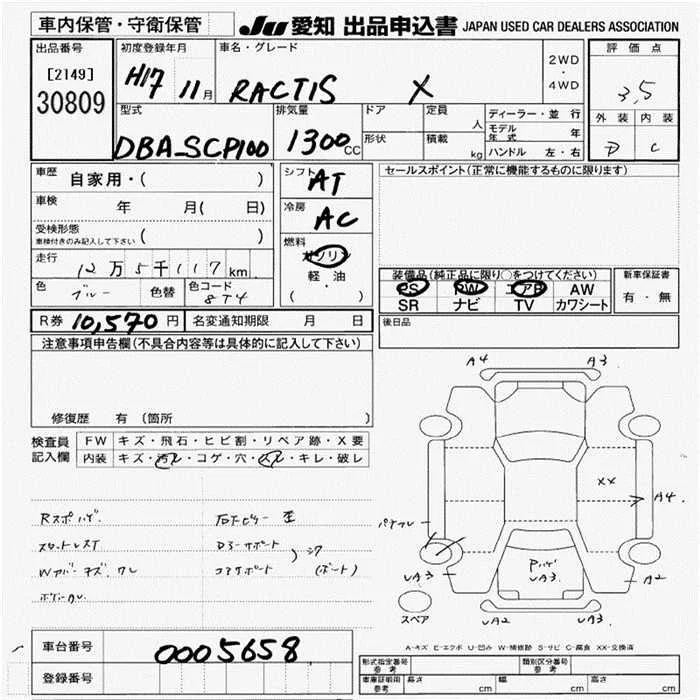 車内保管・守衛保管 JU 愛知 出品申込書 JAPAN USED CAR DEALERS ASSOCIATION
出品番号 初度登録年月 車名・グレード 2WD・4WD 評価点
[2149] H17 11月 RACTIS X 3,5
30809
型式 排気量 ドア 定員 人 ディーラー・並行 外装 内装
DBA-SCP100 1300cc 形状 積載 kg モデル年式 年 D C
ハンドル 左・右
車歴 自家用・( ) シフト AT セールスポイント(正常に機能するものに限ります)
車検 年 月( 日) 冷房 AC
受検形態 ( )
車検付きのみ記入して下さい
燃料 ガソリン
走行 12万5千117km 軽・油
色 ブルー 色替 色コード 8T4 ( )
装備品(純正品に限り○をつけてください) 新車保証書
PS PW エアB AW 有・無
SR ナビ TV カワシート
R券 10,570円 名変通知期限 月 日 後日品
注意事項申告欄(不具合内容等は具体的に記入して下さい)
修復歴 有(箇所
検査員 FW キズ・飛石・ヒビ割・リペア跡・X要
記入欄 内装 キズ・汚レ・コゲ・穴・スレ・キレ・破レ
A4 A3
XX
A4
Rスポハゲ
UA3 UA3 A2
スペア UA2 UA3
A-キズ E-エクボ U-凹み W-補修跡 S-サビ C-腐食 XX-交換済
車台番号 0005658
登録番号
形式指定番号 参考 類別区分番号 参考
車庫証明用 参考 長さ cm 幅 cm 高さ cm